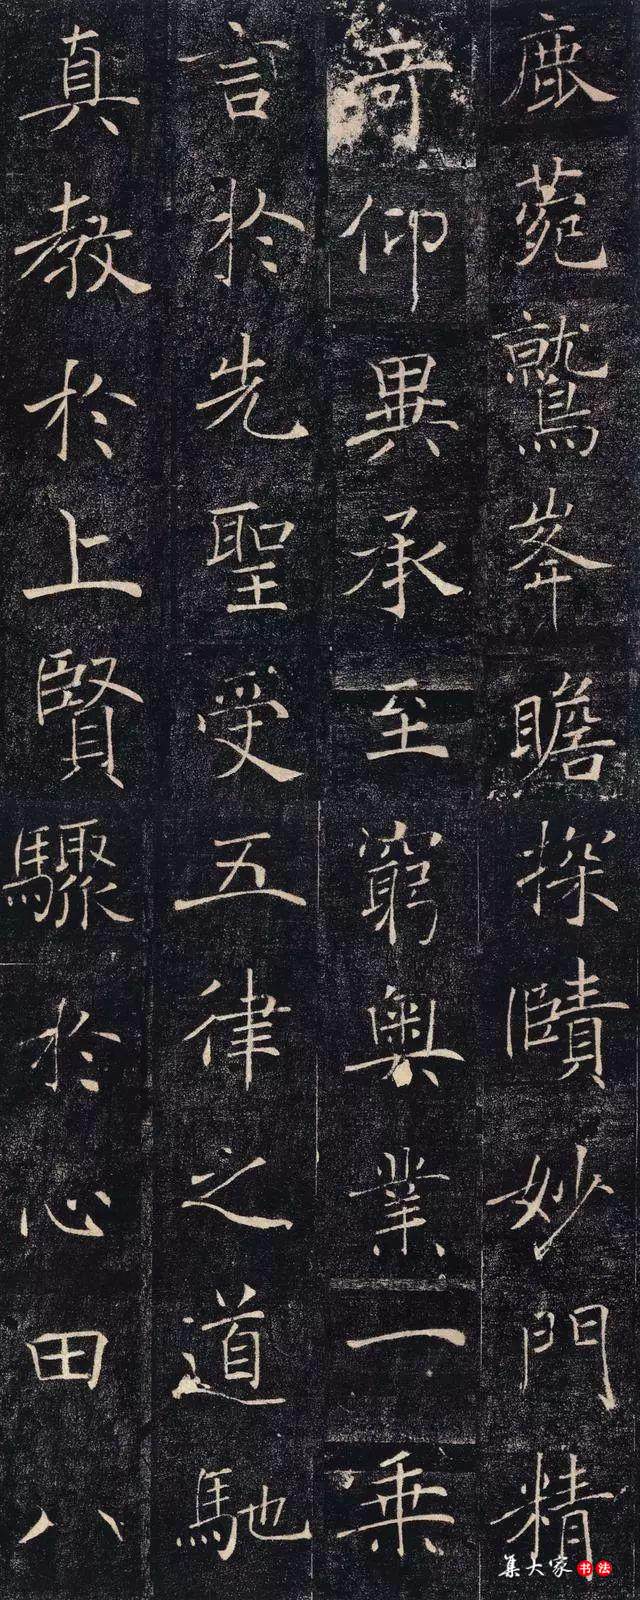 鹿菀鷲峯瞻
奇仰異承至
言於先聖受
真教於上賢
探賾妙門精
窮奧業一乘
五律之道馳
驟於心田八
集大家书法